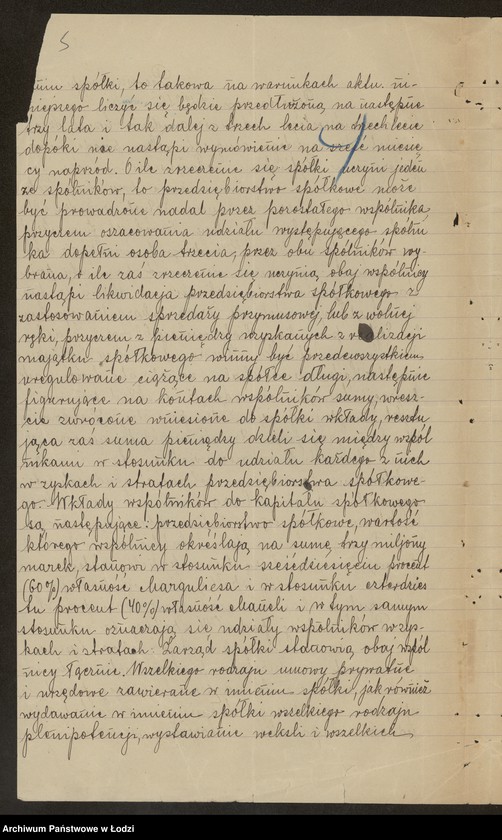 5
spółki, to takowa na warunkach aktu ni-
niejszego liczyć się będzie przedłużoną na następne
trzy lata i tak dalej z trzech lecia na trzechlecie
dopóki nie nastąpi wymówienie na sześć miesię
cy naprzód. O ile zrzeczenie się spółki uczyni jeden
ze spólników, to przedsiębiorstwo spółkowe może
być prowadzone nadal przez pozostałego wspólnika
przyczem oszacowania udziału występującego spólni
ka dopełni osoba trzecia, przez obu spólników wy-
brana, o ile zaś zrzeczenie się uczynią obaj wspólnicy
nastąpi likwidacja przedsiębiorstwa spółkowego z
zastosowaniem sprzedaży przymusowej lub z wolnej
ręki, przyczem z pieniędzy uzyskanych z realizacji
majątku spółkowego winny być przedewszystkiem
uregulowane ciążące na spółce długi, następnie
figurujące na kontach wspólników sumy, wresz-
cie zwrócone wniesione do spółki wkłady, resztu
jąca zaś suma pieniędzy dzieli się między wspól
nikami w stosunku do udziału każdego z nich
w zyskach i stratach przedsiębiorstwa spółkowe-
go. Wkłady wspólników do kapitału spółkowego
są następujące: przedsiębiorstwo spółkowe, wartość
którego wspólnicy określają na sumę trzy miljony
marek, stanowi w stosunku sześćdziesięciu procent
(60%) własność Marguliesa i w stosunku czterdzies
tu procent (40%) własność Chaneli i w tym samym
stosunku oznaczają się udziały wspólników w zys-
kach i stratach. Zarząd spółki stanowią obaj wspól
nicy łącznie. Wszelkiego rodzaju umowy prywatne
i urzędowe zawierane w imieniu spółki, jak również
wydawanie w imieniu spółki wszelkiego rodzaju
plenipotencji, wystawianie weksli i wszelkich
Archiwum Państwowe w Łodzi